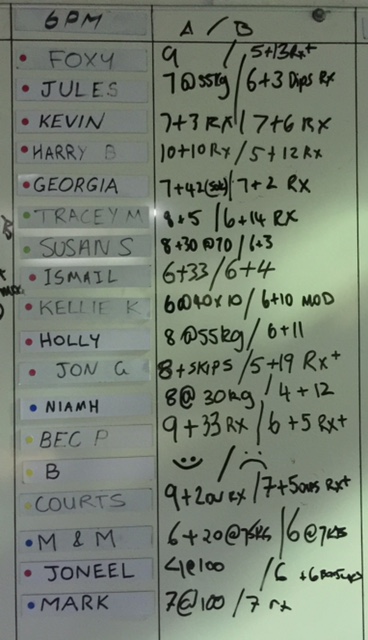 6PM A / B
FOXY 9 / 5+13Rx+
JULES 7@55kg / 6+3 Dips Rx
KEVIN 7+3 RX / 7+6 RX
HARRY B 10+10 Rx / 5+12 Rx
GEORGIA 7+42 / 7+2 RX
TRACEY M 8+5 / 6+14 RX
SUSAN S 8+30@70 / 6+3
ISMAIL 6+33 / 6+4
KELLIE K 6@40x10 / 6+10 MOD
HOLLY 8@55kg / 6+11
JON G 8+SKIPS / 5+19 Rx+
NIAMH 8@30kg / 4+12
BEC P 9+33 RX / 6+5 Rx+
B /
COURTS 9+20 RX / 7+5 Rx+
M & M 6+20@75KGS / 6@
JONEEL @100 / 6
MARK 7@100 / 7 rx